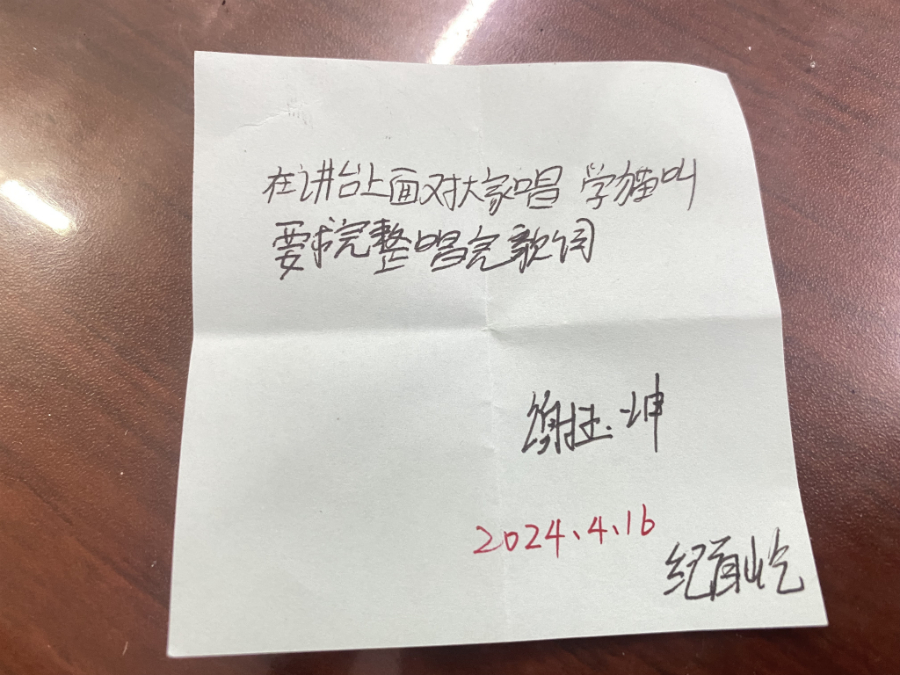 在讲台上面对大家唱 学猫叫
要求完整唱完歌词
坤
2024、4、16
纪百屹